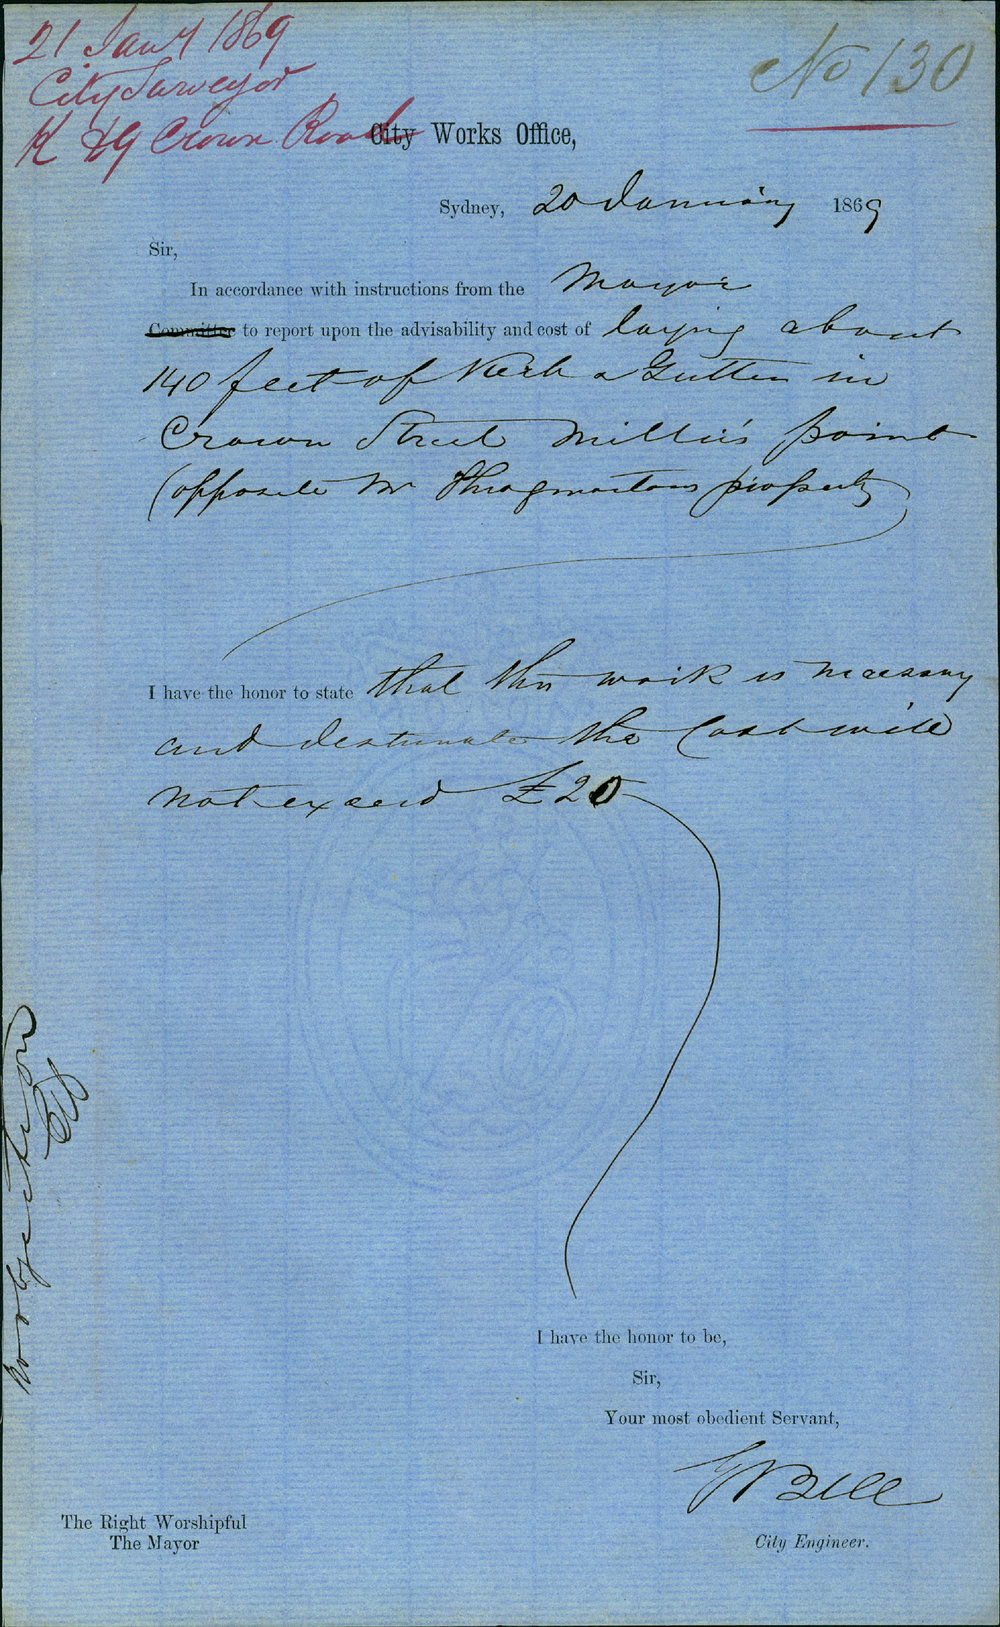 21 Jany 1869
City Surveyor
K & G Crown Road
No 130
City Works Office,
Sydney, 20 January 1869
Sir,
In accordance with instructions from the Mayor
Committee to report upon the advisability and cost of laying about
140 feet of Kerb & Gutter in
Crown Street Miller's point
(opposite Mr Throgmortons property)
I have the honor to state that this work is necessary
and I estimate the Cost will
not exceed £20
No objection
I have the honor to be,
Sir,
Your most obedient Servant,
Bell
City Engineer.
The Right Worshipful
The Mayor